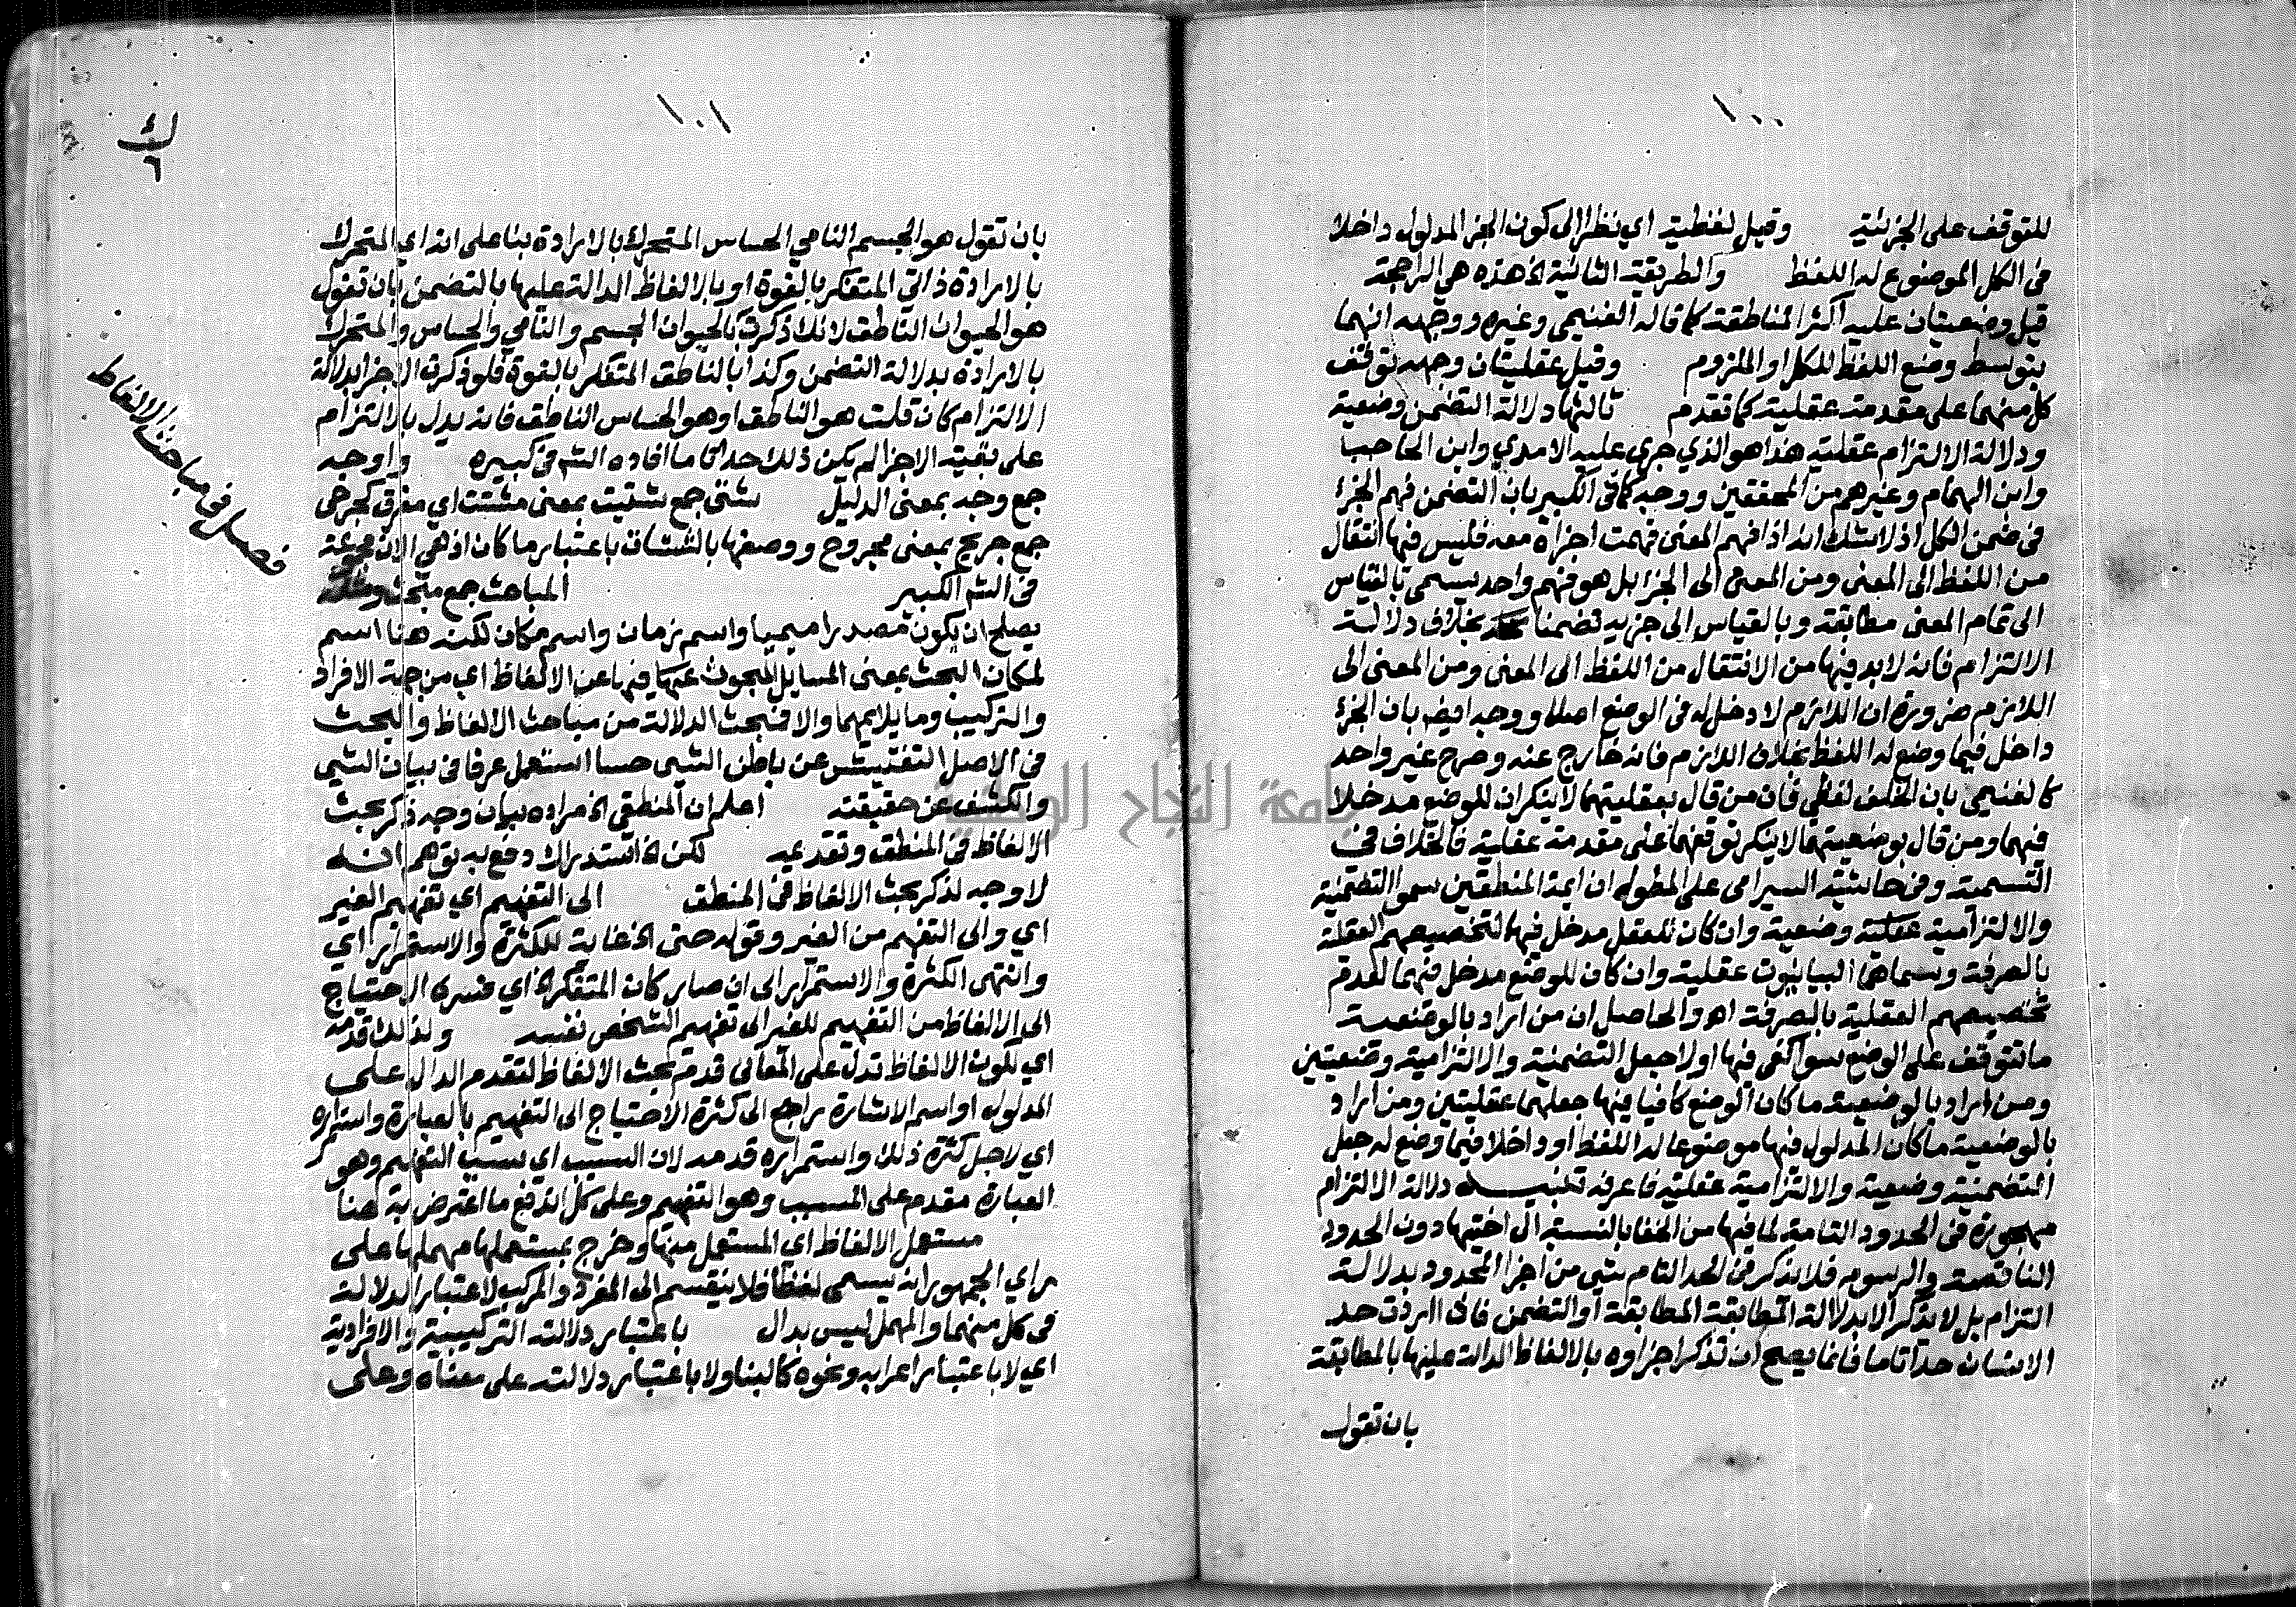 ١٠٠
للتوقف على الجزئية وقيل لفظية اي نظرا الى كون الجز المدلول داخلا
في الكل الموضوع له اللفظ والطريقة الثانية الخ هذه هي الراجحة
قيل وضعيتان عليه اكثر المناطقة كما قاله الغنيمي وغيره ووجهه انهما
بتوسط وضع اللفظ للكل او الملزوم وقيل عقليتان وجهه توقف
كل منهما على مقدمة عقلية كما تقدم ثالثها دلالة التضمن وضعية
ودلالة الالتزام عقلية هذا هو الذي جرى عليه الامدي وابن الحاجب
وابن الهمام وغيرهم من المحققين ووجه كما في الكبير بان التضمن فهم الجزء
في ضمن الكل اذ لا شك انه اذا فهم المعنى فهمت اجزاه معه فليس فيها انتقال
من اللفظ الى المعنى ومن المعنى الى الجز بل هو فهم واحد يسمى بالقياس
الى تمام المعنى مطابقة وبالقياس الى جزيه تضمنا بخلاف دلالة
الالتزام فانه لابد فيها من الانتقال من اللفظ الى المعنى ومن المعنى الى
اللازم ضرورة ان اللازم لا دخل له في الوضع اصلا ووجه ايضا بان الجزء
داخل فيما وضع له اللفظ بخلاف اللازم فانه خارج عنه وصرح غير واحد
كالغنيمي بان الخلف لفظي فان من قال بعقليتهما لا ينكر ان للوضع مدخلا
فيهما ومن قال بوضعيتهما لا ينكر توقفهما على مقدمة عقلية فالخلاف في
التسمية وفي حاشية السيرامي على المطول ان ايمة المنطقين سموا التضمنية
والالتزامية وضعية وان كان للعقل مدخل فيها لتخصيصهم العقلية
بالصرفة ويسماها البيانيون عقلية وان كان للوضع مدخل فيهما لعدم
تخصيصهم العقلية بالصرفة اهـ والحاصل ان من اراد بالوضعية
ما تتوقف على الوضع سوا كفى فيها او لا جعل التضمنية والالتزامية وضعيتين
ومن اراد بالوضعية ما كان الوضع كافيا فيها جعلهما عقليتين ومن اراد
بالوضعية ما كان المدلول فيها موضوعا له اللفظ او داخلا فيما وضع له جعل
التضمنية وضعية والالتزامية عقلية فاعرفه تنبيه دلالة الالتزام
مهجورة في الحدود التامة لما فيها من الخفا بالنسبة الى اختيها دون الحدود
الناقصة والرسوم فلا يذكر في الحد التام شي من اجزا المحدود بدلالة
التزام بل لا يذكر الا بدلالة المطابقة المطابقة او التضمن فاذا اردت حد
الانسان حدا تاما فانما يصح ان تذكر اجزاوه بالالفاظ الدالة عليها بالمطابقة
بان تقول
١٠١
بان تقول هو الجسم النامي الحساس المتحرك بالارادة بنا على انه اي المتحرك
بالارادة ذاتي المتفكر بالقوة او بالالفاظ الدالة عليها بالتضمن بان تقول
هو الحيوان الناطق لانك ذكرت بالحيوان الجسم والنامي والحساس والمتحرك
بالارادة بدلالة التضمن وكذا بالناطق المتفكر بالقوة فلو ذكرت الاجزا بدلالة
الالتزام كان قلت هو الناطق او هو الحساس الناطق فانه يدل بالالتزام
على بقية الاجزا لم يكن ذلك حدا تاما افاده الش في كبيره واوجه
جمع وجه بمعنى الدليل شتى جمع شتيت بمعنى مشتت اي مفرق كجرحى
جمع جريح بمعنى مجروح ووصفها بالشتات باعتبار ما كان اذ هي الان مجموعة
في الش الكبير المباحث جمع مبحث
يصلح ان يكون مصدرا ميميا واسم زمان واسم مكان لكنه هنا اسم
لمكان البحث بمعنى المسايل المبحوث فيها عن الالفاظ اي من جهة الافراد
والتركيب وما يلايمهما والا فبحث الدلالة من مباحث الالفاظ والبحث
في الاصل التفتيش عن باطن الشي حسا استعمل عرفا في بيان الشي
والكشف عن حقيقته اعلم ان المنطقي الخ مراده بيان وجه ذكر بحث
الالفاظ في المنطق وتقديمه لكن الخ استدراك دفع به توهم انه
لا وجه لذكر بحث الالفاظ في المنطق الى التفهيم اي تفهيم الغير
اي والى التفهم من الغير وقوله حتى الخ غاية للكثرة والاستمرار اي
وانتهى الكثرة والاستمرار الى ان صار كان المتفكر الخ اي فسرى الاحتياج
الى الالفاظ من التفهيم للغير الى تفهيم الشخص نفسه ولذلك قدمه
اي لكون الالفاظ تدل على المعاني قدم بحث الالفاظ لتقدم الدال على
المدلول او اسم الاشارة راجع الى كثرة الاحتياج الى التفهيم بالعبارة واستمراره
اي لاجل كثرة ذلك واستمراره قدمه لان السبب اي سبب التفهيم وهو
العبارة مقدم على المسبب وهو التفهيم وعلى كل اندفع ما اعترض به هنا
مستعمل الالفاظ اي المستعمل منها وخرج بمستعملها مهملها على
راي الجمهور انه يسمى لفظا فلا ينقسم الى المفرد والمركب لاعتبار الدلالة
في كل منهما والمهمل ليس بدال باعتبار دلالته التركيبية والافرادية
اي لا باعتبار اعرابه ونحوه كالبنا ولا باعتبار دلالته على معناه وعلى
فصل في مباحث الالفاظ
جامعة النجاح الوطنية